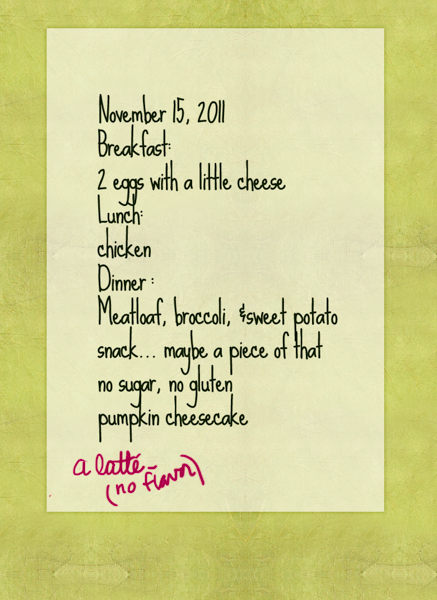 November 15, 2011
Breakfast:
2 eggs with a little cheese
Lunch:
chicken
Dinner :
Meatloaf, broccoli, &sweet potato
snack... maybe a piece of that
no sugar, no gluten
pumpkin cheesecake
a latte
(no flavor)